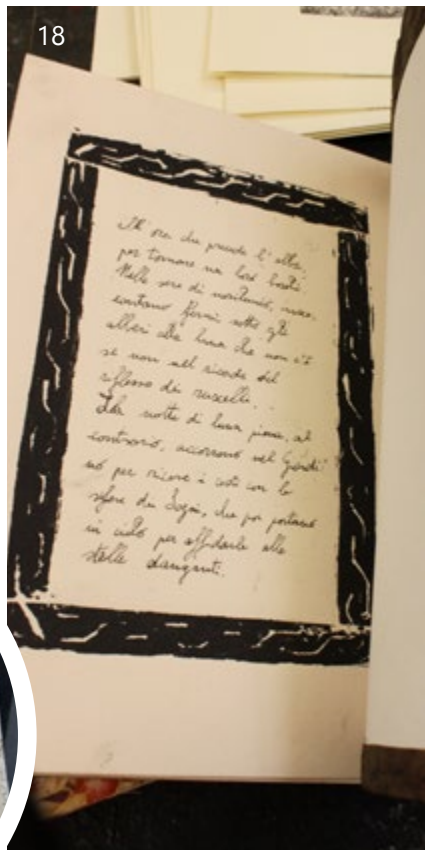 18
All' ora che precede l' alba,
poi tornano nei loro boschi.
Nelle sere di novilunio, invece,
cantano fermi sotto gli
alberi alla luna che non c'è
se non nel ricordo del
riflesso dei ruscelli.
Le notti di luna piena, al
contrario, accorrono nel Giardi
no per ricevere i così con le
sfere dei Sogni, che poi portano
in cielo per affidarle alle
stelle danzanti.